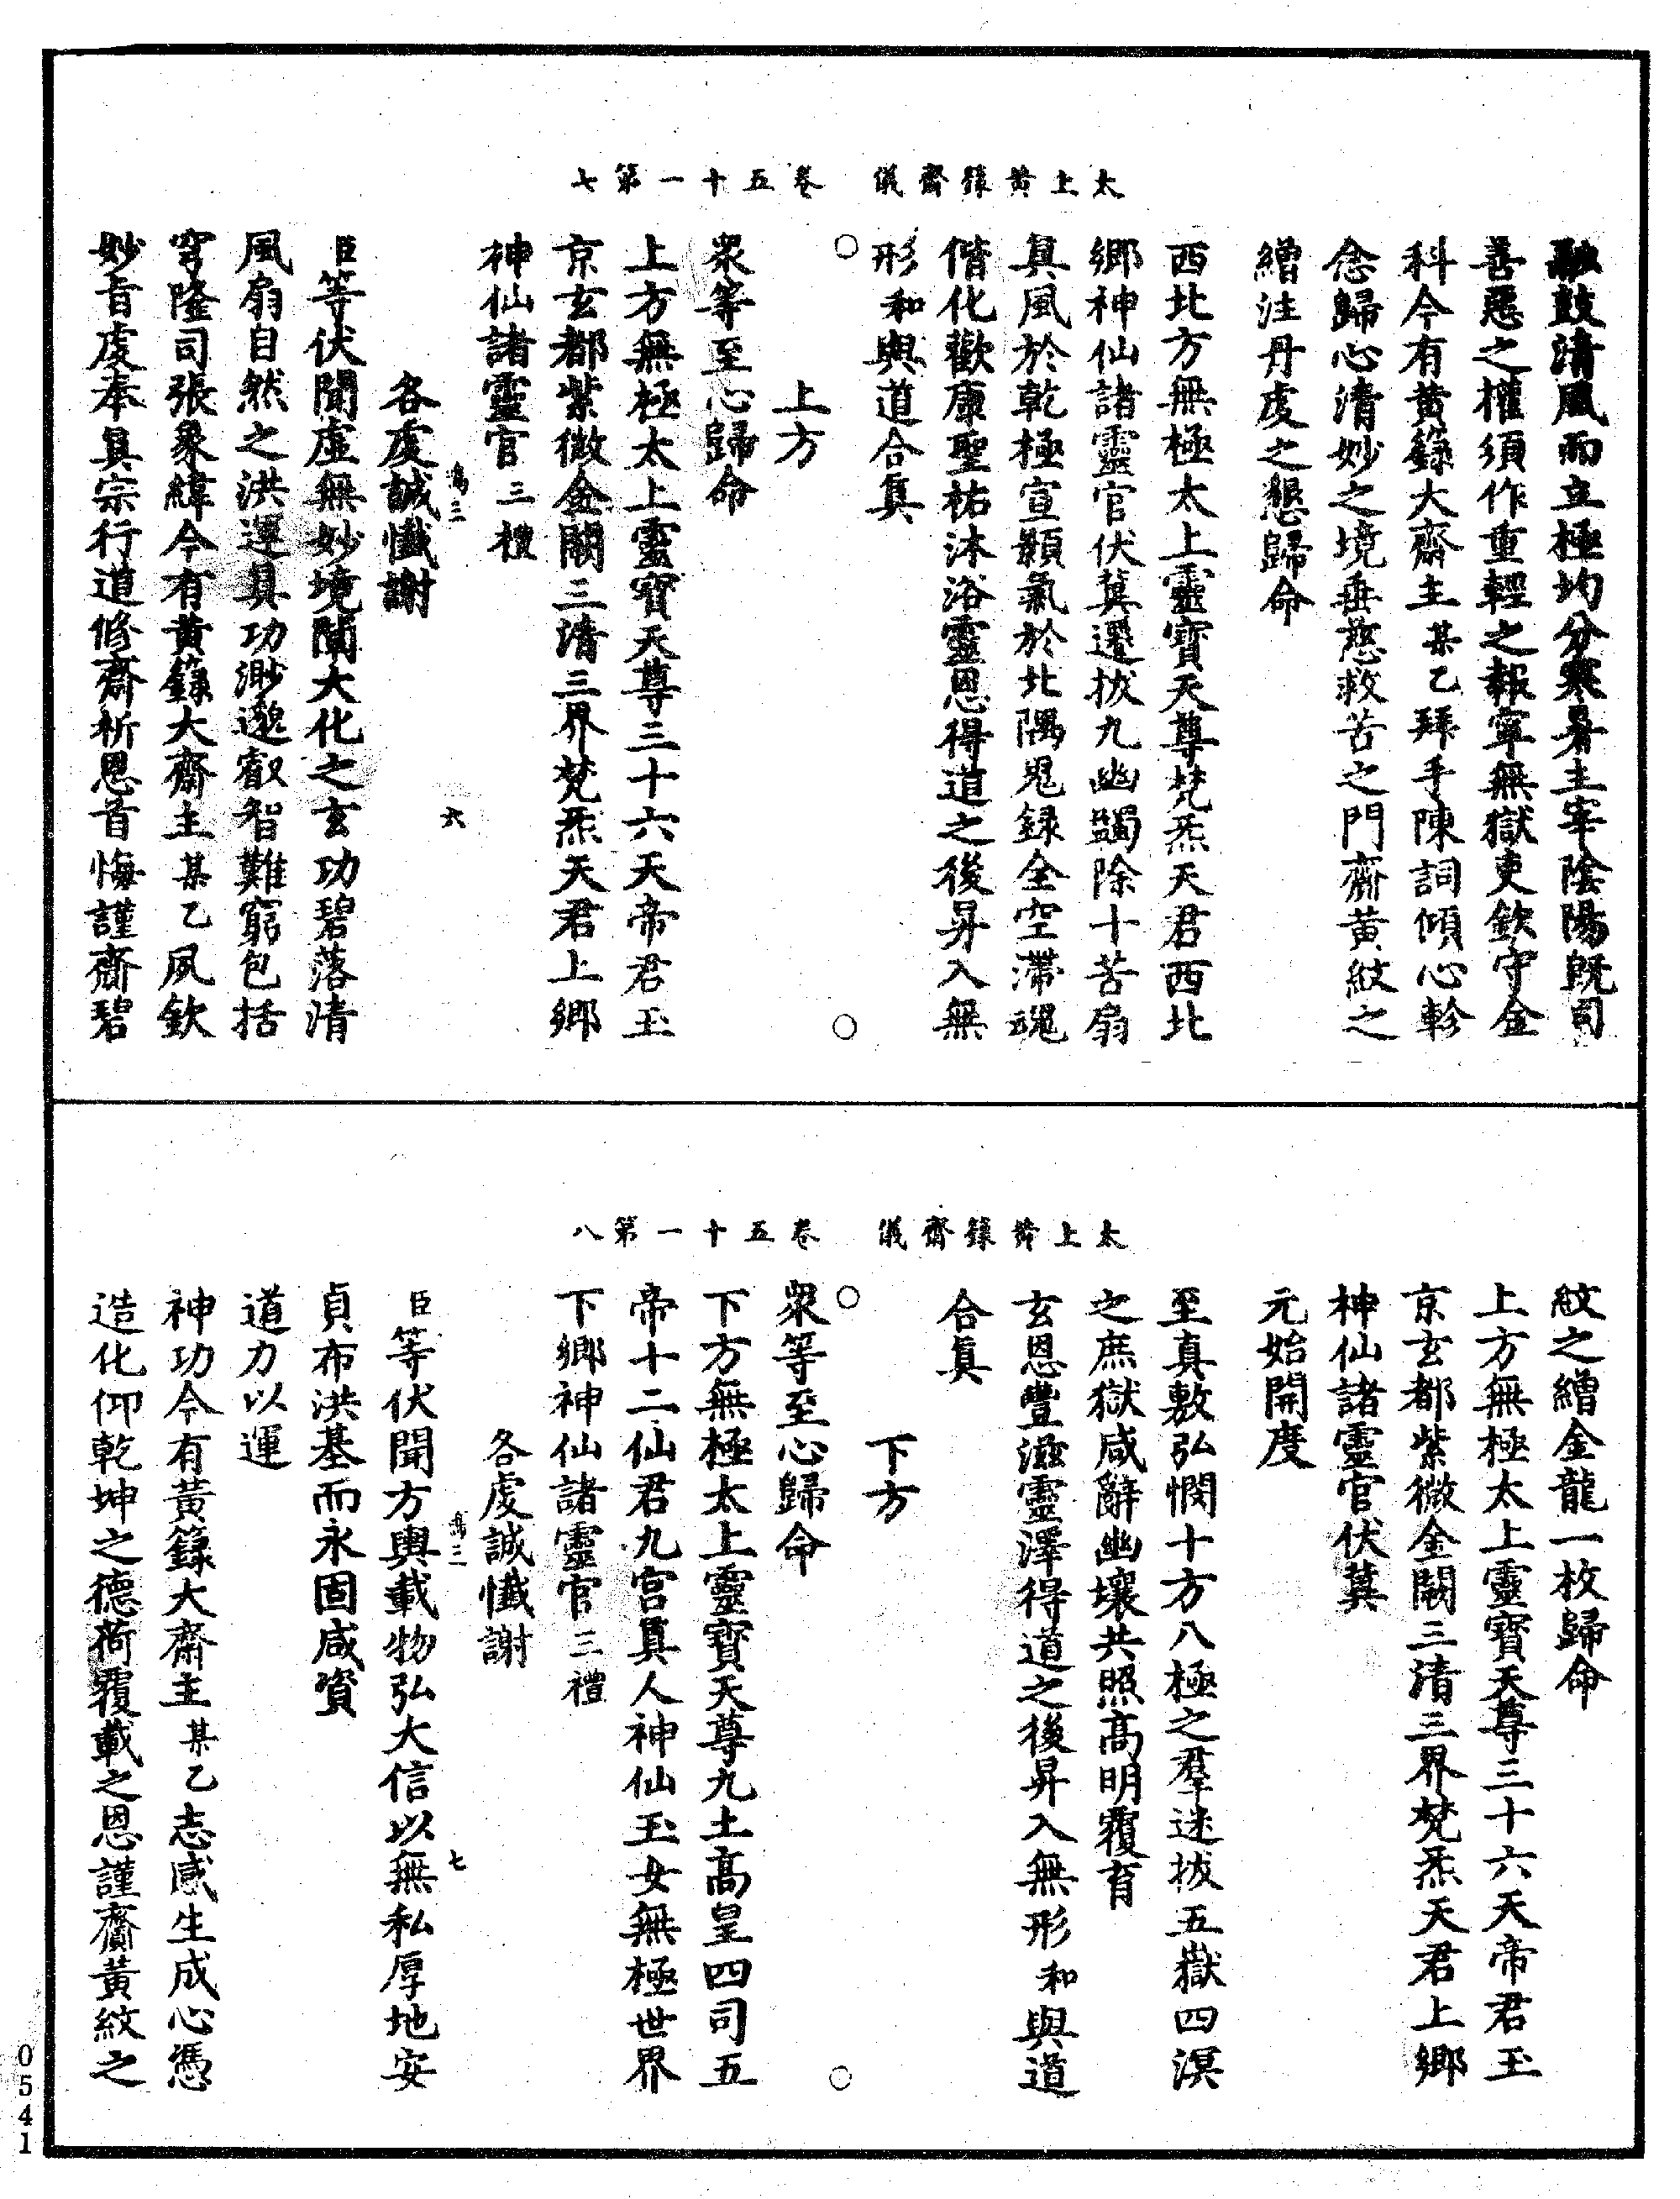 太上黃籙齋儀　卷五十一第七
融鼓清風而立極均分寒暑主宰陰陽既司
善惡之權須作重輕之報寧無獄吏欽守金
科今有黃籙大齋主某乙拜手陳詞傾心軫
念歸心清妙之境垂慈救苦之門齎黃紋之
繒注丹虔之懇歸命
西北方無極太上靈寶天尊梵炁天君西北
鄉神仙諸靈官伏冀遷拔九幽蠲除十苦扇
真風於乾極宣顥氣於北隅鬼錄全空滯魂
偕化歡康聖祐沐浴靈恩得道之後昇入無
形和與道合真
○　上方　○
眾等至心歸命
上方無極太上靈寶天尊三十六天帝君玉
京玄都紫微金闕三清三界梵炁天君上鄉
神仙諸靈官三禮
各虔誠懺謝
六
臣等伏聞虛無妙境闡大化之玄功碧落清
風扇自然之洪運具功渺邈叡智難窮包括
穹隆司張象緯今有黃籙大齋主某乙夙欽
妙旨虔奉真宗行道修齋祈恩首悔謹齎碧
太上黃籙齋儀　卷五十一第八
紋之繒金龍一枚歸命
上方無極太上靈寶天尊三十六天帝君玉
京玄都紫微金闕三清三界梵炁天君上鄉
神仙諸靈官伏冀
元始開度
至真敷弘憫十方八極之羣迷拔五嶽四溟
之庶獄咸辭幽壤共照高明覆育
玄恩豐滋靈澤得道之後昇入無形和與道
合真
○　下方　○
眾等至心歸命
下方無極太上靈寶天尊九土高皇四司五
帝十二仙君九宮真人神仙玉女無極世界
下鄉神仙諸靈官三禮
各虔誠懺謝
七
臣等伏聞方輿載物弘大信以無私厚地安
貞布洪基而永固咸資
道力以運
神功今有黃籙大齋主某乙志感生成心憑
造化仰乾坤之德荷覆載之恩謹齎黃紋之
0541